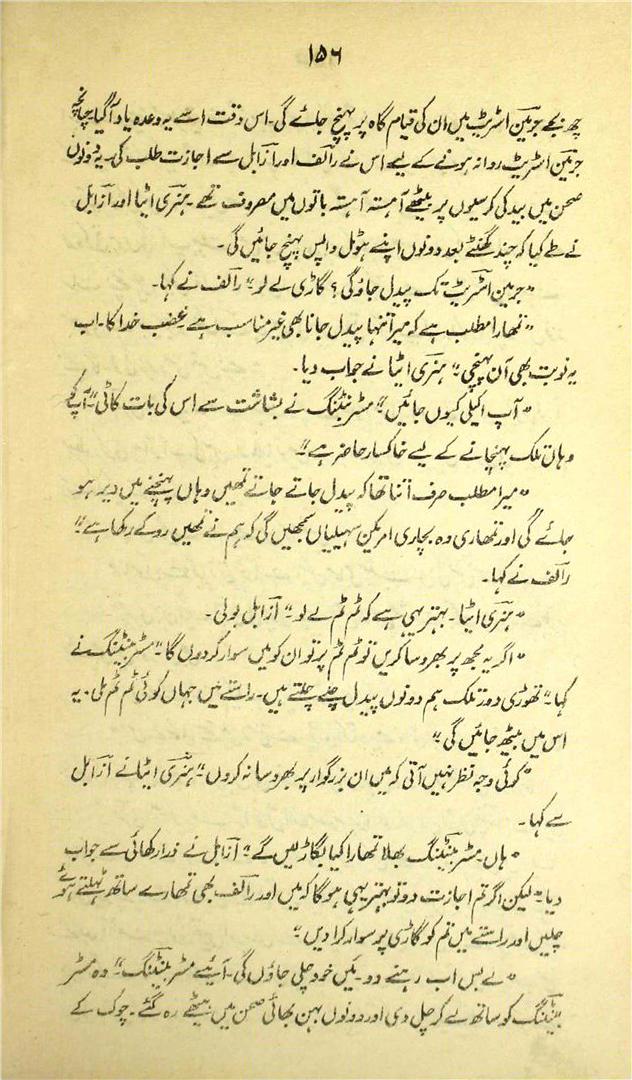 ۱۵۶
چھ بجے جرمین اسٹریٹ میں ان کی قیام گاہ پر پہنچ جائے گی۔ اس وقت اسے یہ وعدہ یاد آگیا۔ چنانچہ
جرمین اسٹریٹ روانہ ہونے کے لیے اس نے رالف اور آزابل سے اجازت طلب کی۔ یہ دونوں
صحن میں بید کی کرسیوں پر بیٹھے آہستہ آہستہ باتوں میں مصروف تھے۔ ہنری ایٹا اور آزابل
نے طے کیا کہ چند گھنٹے بعد دونوں اپنے ہوٹل واپس پہنچ جائیں گی۔
"جرمین اسٹریٹ تک پیدل جاؤ گی؟ گاڑی لے لو۔" رالف نے کہا۔
"تمھارا مطلب ہے کہ میرا تنہا پیدل جانا بھی غیر مناسب ہے۔ غضب خدا کا۔ اب
یہ نوبت بھی آن پہنچی۔" ہنری ایٹا نے جواب دیا۔
"آپ اکیلی کیوں جائیں۔" مسٹر بنٹلنگ نے بشاشت سے اس کی بات کاٹی "آپ کو
وہاں تلک پہنچانے کے لیے خاکسار حاضر ہے۔"
"میرا مطلب صرف اتنا تھا کہ پیدل جاتے جاتے تمھیں وہاں پہنچنے میں دیر ہو
جائے گی اور تمھاری وہ بچاری امریکن سہیلیاں سمجھیں گی کہ ہم نے تمھیں روکے رکھا ہے۔"
رالف نے کہا۔
"ہنری ایٹا۔ بہتر یہی ہے کہ ٹم ٹم لے لو۔" آزابل بولی۔
"اگر یہ مجھ پر بھروسا کریں تو ٹم ٹم پر تو ان کو میں سوار کر دوں گا۔" مسٹر بنٹلنگ نے
کہا۔ "تھوڑی دور تلک ہم دونوں پیدل چلے چلتے ہیں۔ راستے میں جہاں کوئی ٹم ٹم ملی۔ یہ
اس میں بیٹھ جائیں گی۔"
"کوئی وجہ نظر نہیں آتی کہ میں ان بزرگوار پر بھروسا نہ کروں۔" ہنری ایٹا نے آزابل
سے کہا۔
"ہاں۔ مسٹر بنٹلنگ بھلا تمھارا کیا بگاڑ لیں گے۔" آزابل نے ذرا رکھائی سے جواب
دیا۔ "لیکن اگر تم اجازت دو تو بہتر یہی ہوگا کہ میں اور رالف بھی تمھارے ساتھ ٹہلتے ہوئے
چلیں اور راستے میں تم کو گاڑی پر سوار کرا دیں۔"
"لے بس اب رہنے دو۔ میں خود چلی جاؤں گی۔ آیئے مسٹر بنٹلنگ۔" وہ مسٹر
بنٹلنگ کو ساتھ لے کر چل دی اور دونوں بہن بھائی صحن میں بیٹھے رہ گئے۔ چوک کے